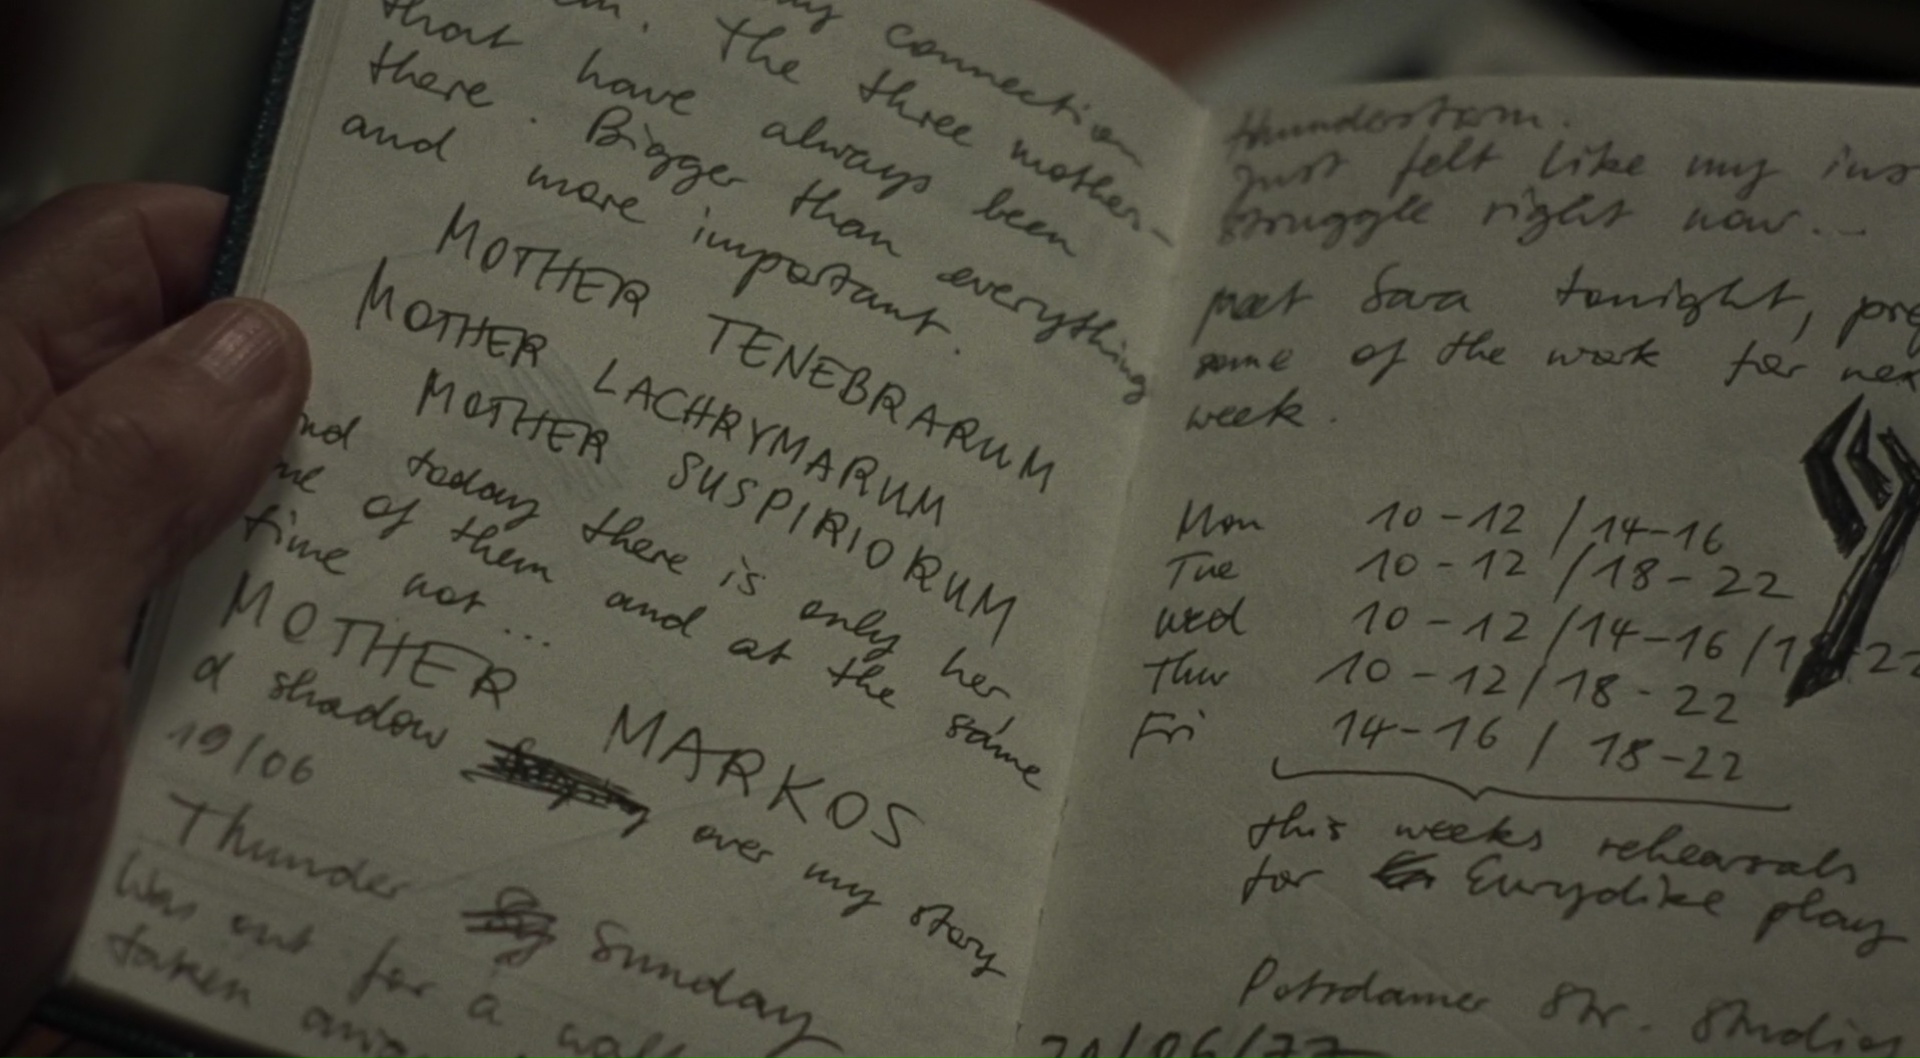 my connection
The three mother-
that have always been
there. Bigger than everything
and more important.
MOTHER TENEBRARUM
MOTHER LACHRYMARUM
MOTHER SUSPIRIORUM
today there is only her
of them and at the same
time not...
MOTHER MARKOS
a shadow over my story
19/06
Thunder Sunday
Was out for a
taken
thunderstorm.
Just felt like my
struggle right now...
meet Sara tonight,
some of the work for
week.
Mon 10-12 / 14-16
Tue 10-12 / 18-22
Wed 10-12 / 14-16 /
Thur 10-12 / 18-22
Fri 14-16 / 18-22
this weeks rehearsals
for Eurydike play
Potsdamer Str. Studios
20/06/77